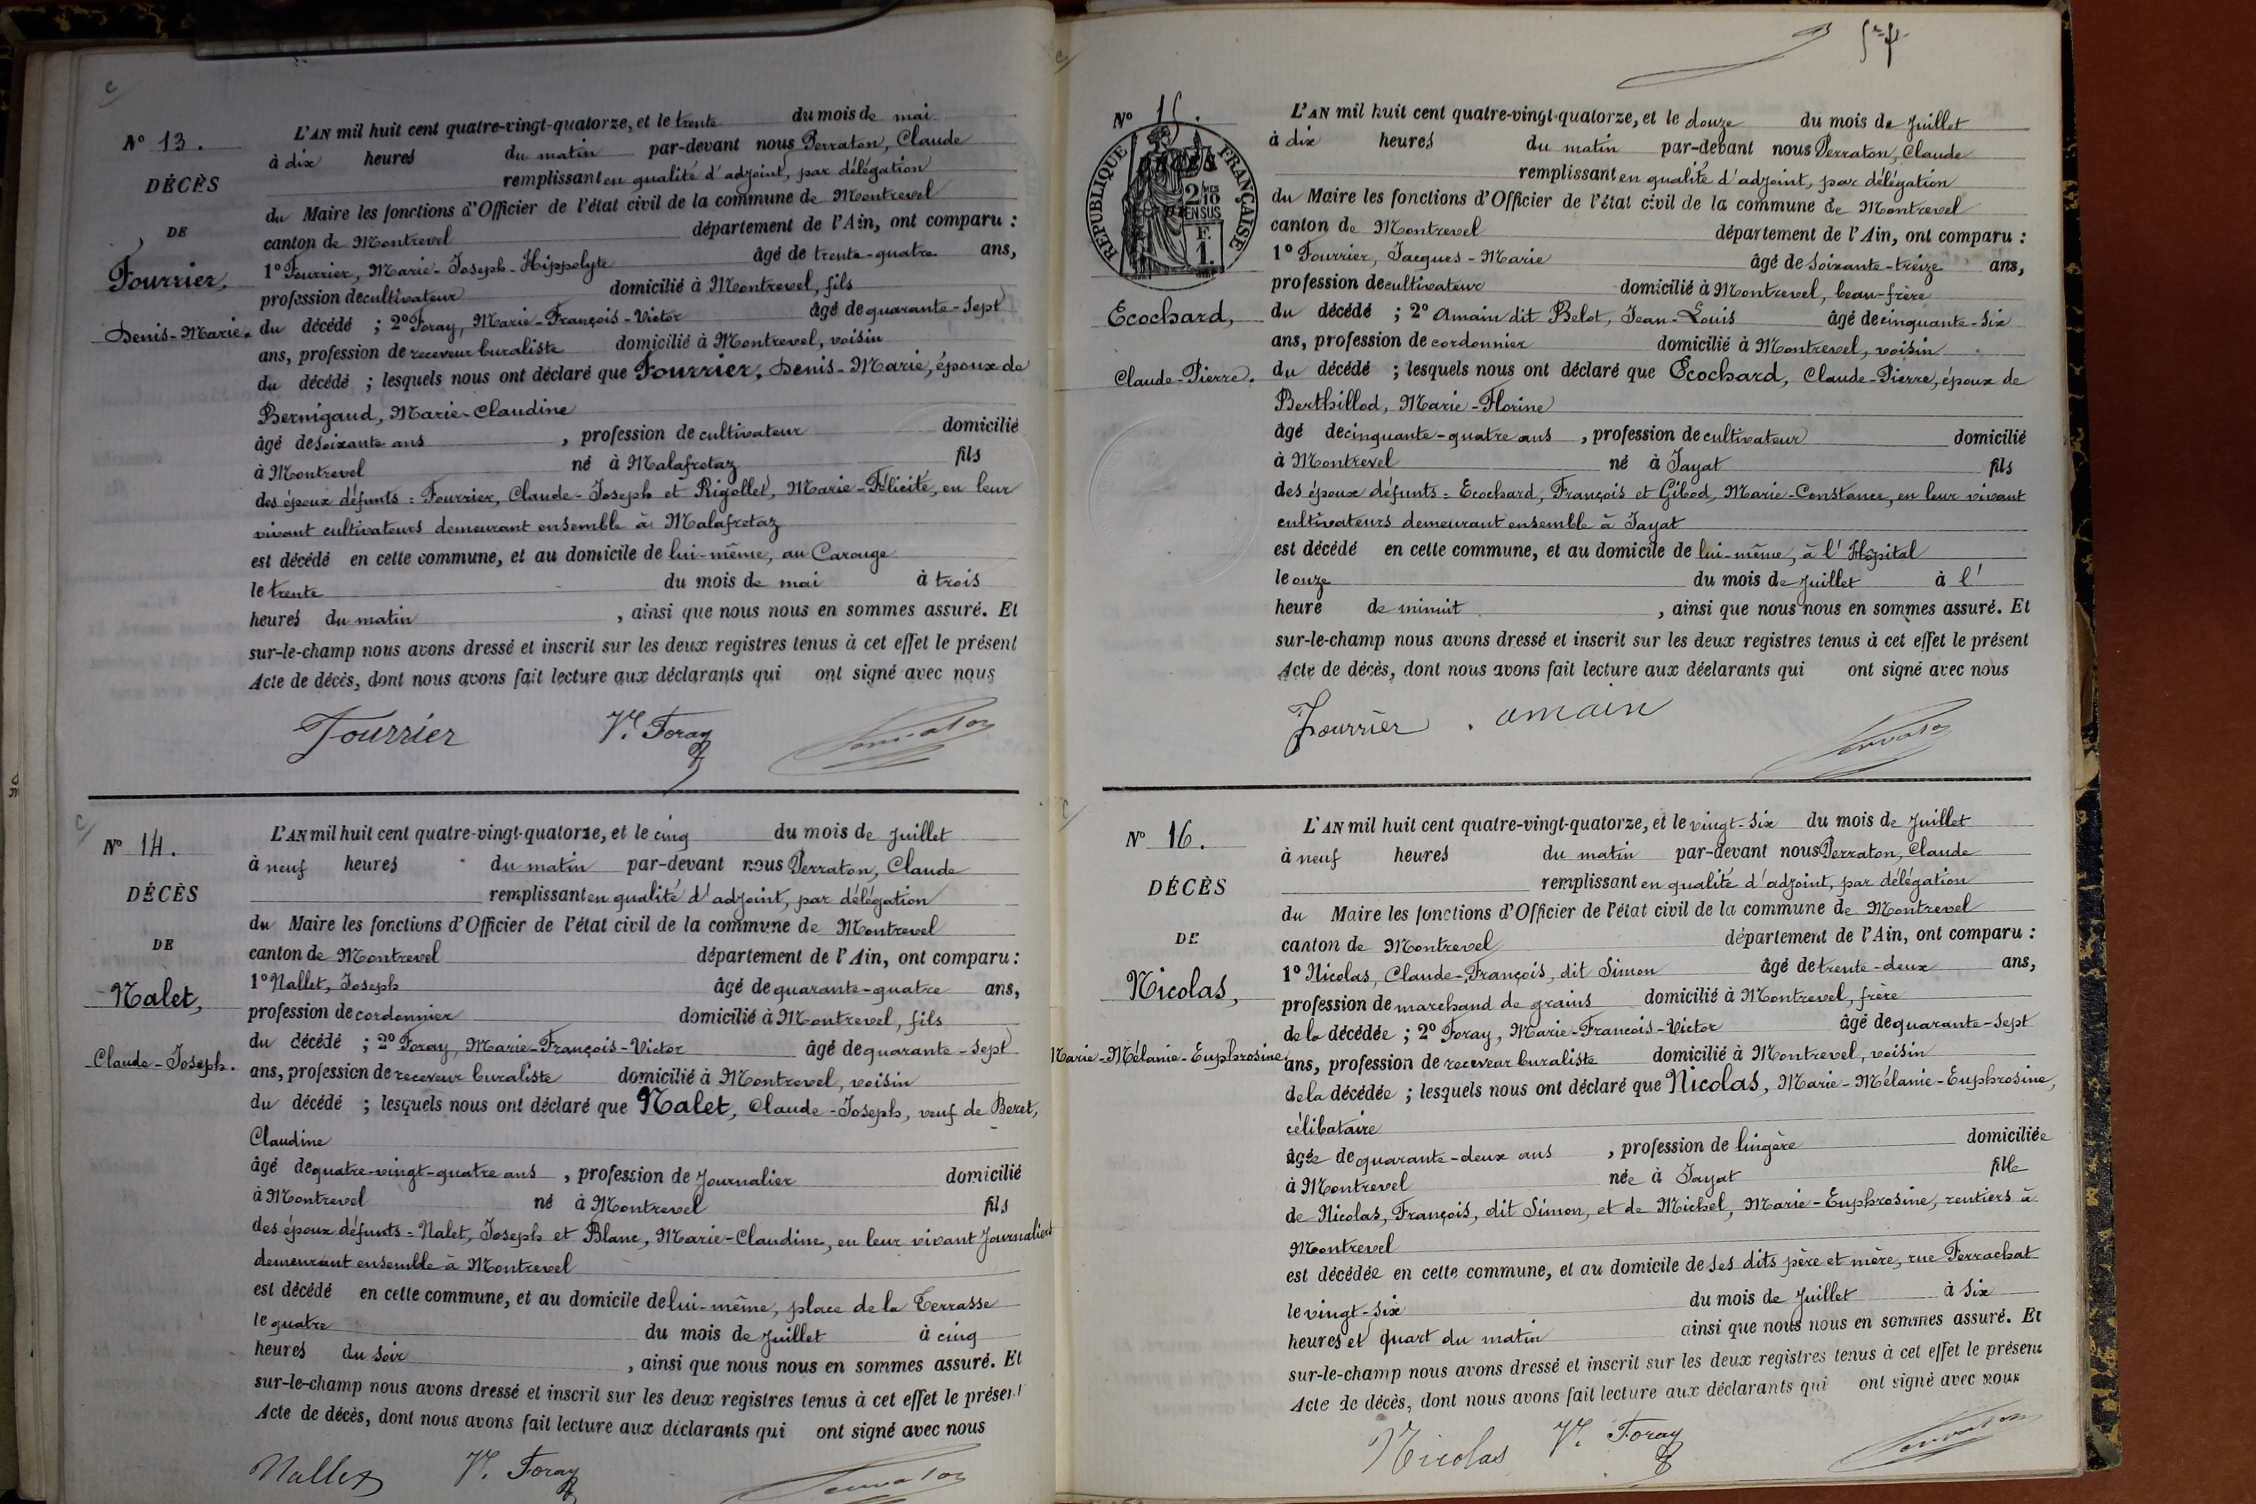 Nº 13.
DÉCÈS
DE
Fourrier,
Denis-Marie.
L'AN mil huit cent quatre-vingt-quatorze, et le trente du mois de mai
à dix heures du matin par-devant nous Perraton, Claude
remplissant en qualité d'adjoint, par délégation
du Maire les fonctions d'Officier de l'état civil de la commune de Montrevel
canton de Montrevel département de l'Ain, ont comparu :
1º Fourrier, Marie-Joseph-Hippolyte âgé de trente-quatre ans,
profession de cultivateur domicilié à Montrevel, fils
du décédé ; 2º Foray, Marie-François-Victor âgé de quarante-sept
ans, profession de receveur buraliste domicilié à Montrevel, voisin
du décédé ; lesquels nous ont déclaré que Fourrier, Denis-Marie, époux de
Bernigaud, Marie-Claudine
âgé de soixante ans , profession de cultivateur domicilié
à Montrevel né à Malafretaz fils
des époux défunts : Fourrier, Claude-Joseph et Rigollet, Marie-Félicité, en leur
vivant cultivateurs demeurant ensemble à Malafretaz
est décédé en cette commune, et au domicile de lui-même, au Carouge
le trente du mois de mai à trois
heures du matin , ainsi que nous nous en sommes assuré. Et
sur-le-champ nous avons dressé et inscrit sur les deux registres tenus à cet effet le présent
Acte de décès, dont nous avons fait lecture aux déclarants qui ont signé avec nous
Fourrier V. Foray Perraton
Nº 14.
DÉCÈS
DE
Nalet,
Claude-Joseph.
L'AN mil huit cent quatre-vingt-quatorze, et le cinq du mois de Juillet
à neuf heures du matin par-devant nous Perraton, Claude
remplissant en qualité d'adjoint, par délégation
du Maire les fonctions d'Officier de l'état civil de la commune de Montrevel
canton de Montrevel département de l'Ain, ont comparu :
1º Nallet, Joseph âgé de quarante-quatre ans,
profession de cordonnier domicilié à Montrevel, fils
du décédé ; 2º Foray, Marie-François-Victor âgé de quarante-sept
ans, profession de receveur buraliste domicilié à Montrevel, voisin
du décédé ; lesquels nous ont déclaré que Nalet, Claude-Joseph, veuf de Beret,
Claudine
âgé de quatre-vingt-quatre ans , profession de Journalier domicilié
à Montrevel né à Montrevel fils
des époux défunts : Nalet, Joseph et Blanc, Marie-Claudine, en leur vivant Journaliers
demeurant ensemble à Montrevel
est décédé en cette commune, et au domicile de lui-même, place de la Terrasse
le quatre du mois de Juillet à cinq
heures du soir , ainsi que nous nous en sommes assuré. Et
sur-le-champ nous avons dressé et inscrit sur les deux registres tenus à cet effet le présent
Acte de décès, dont nous avons fait lecture aux déclarants qui ont signé avec nous
Nallet V. Foray Perraton
Nº 15.
RÉPUBLIQUE FRANÇAISE
2/10 EN SUS
F. 1.
Ecochard,
Claude-Pierre.
L'AN mil huit cent quatre-vingt-quatorze, et le douze du mois de Juillet
à dix heures du matin par-devant nous Perraton, Claude
remplissant en qualité d'adjoint, par délégation
du Maire les fonctions d'Officier de l'état civil de la commune de Montrevel
canton de Montrevel département de l'Ain, ont comparu :
1º Fourrier, Jacques-Marie âgé de soixante-treize ans,
profession de cultivateur domicilié à Montrevel, beau-frère
du décédé ; 2º Amain dit Belot, Jean-Louis âgé de cinquante-six
ans, profession de cordonnier domicilié à Montrevel, voisin
du décédé ; lesquels nous ont déclaré que Ecochard, Claude-Pierre, époux de
Berthillod, Marie-Florine
âgé de cinquante-quatre ans , profession de cultivateur domicilié
à Montrevel né à Jayat fils
des époux défunts : Ecochard, François et Gibod, Marie-Constance, en leur vivant
cultivateurs demeurant ensemble à Jayat
est décédé en cette commune, et au domicile de lui-même, à l'Hôpital
le onze du mois de Juillet à l'
heure de minuit , ainsi que nous nous en sommes assuré. Et
sur-le-champ nous avons dressé et inscrit sur les deux registres tenus à cet effet le présent
Acte de décès, dont nous avons fait lecture aux déclarants qui ont signé avec nous
Fourrier amain Perraton
Nº 16.
DÉCÈS
DE
Nicolas,
Marie-Mélanie-Euphrosine,
L'AN mil huit cent quatre-vingt-quatorze, et le vingt-six du mois de Juillet
à neuf heures du matin par-devant nous Perraton, Claude
remplissant en qualité d'adjoint, par délégation
du Maire les fonctions d'Officier de l'état civil de la commune de Montrevel
canton de Montrevel département de l'Ain, ont comparu :
1º Nicolas, Claude-François, dit Simon âgé de trente-deux ans,
profession de marchand de grains domicilié à Montrevel, frère
de la décédée ; 2º Foray, Marie-Francois-Victor âgé de quarante-sept
ans, profession de receveur buraliste domicilié à Montrevel, voisin
de la décédée ; lesquels nous ont déclaré que Nicolas, Marie-Mélanie-Euphrosine,
célibataire
âgée de quarante-deux ans , profession de lingère domiciliée
à Montrevel née à Jayat fille
de Nicolas, François, dit Simon, et de Michel, Marie-Euphrosine, rentiers à
Montrevel
est décédée en cette commune, et au domicile de ses dits père et mère, rue Ferrachat
le vingt-six du mois de Juillet à six
heures et quart du matin ainsi que nous nous en sommes assuré. Et
sur-le-champ nous avons dressé et inscrit sur les deux registres tenus à cet effet le présent
Acte de décès, dont nous avons fait lecture aux déclarants qui ont signé avec nous
Nicolas V. Foray Perraton